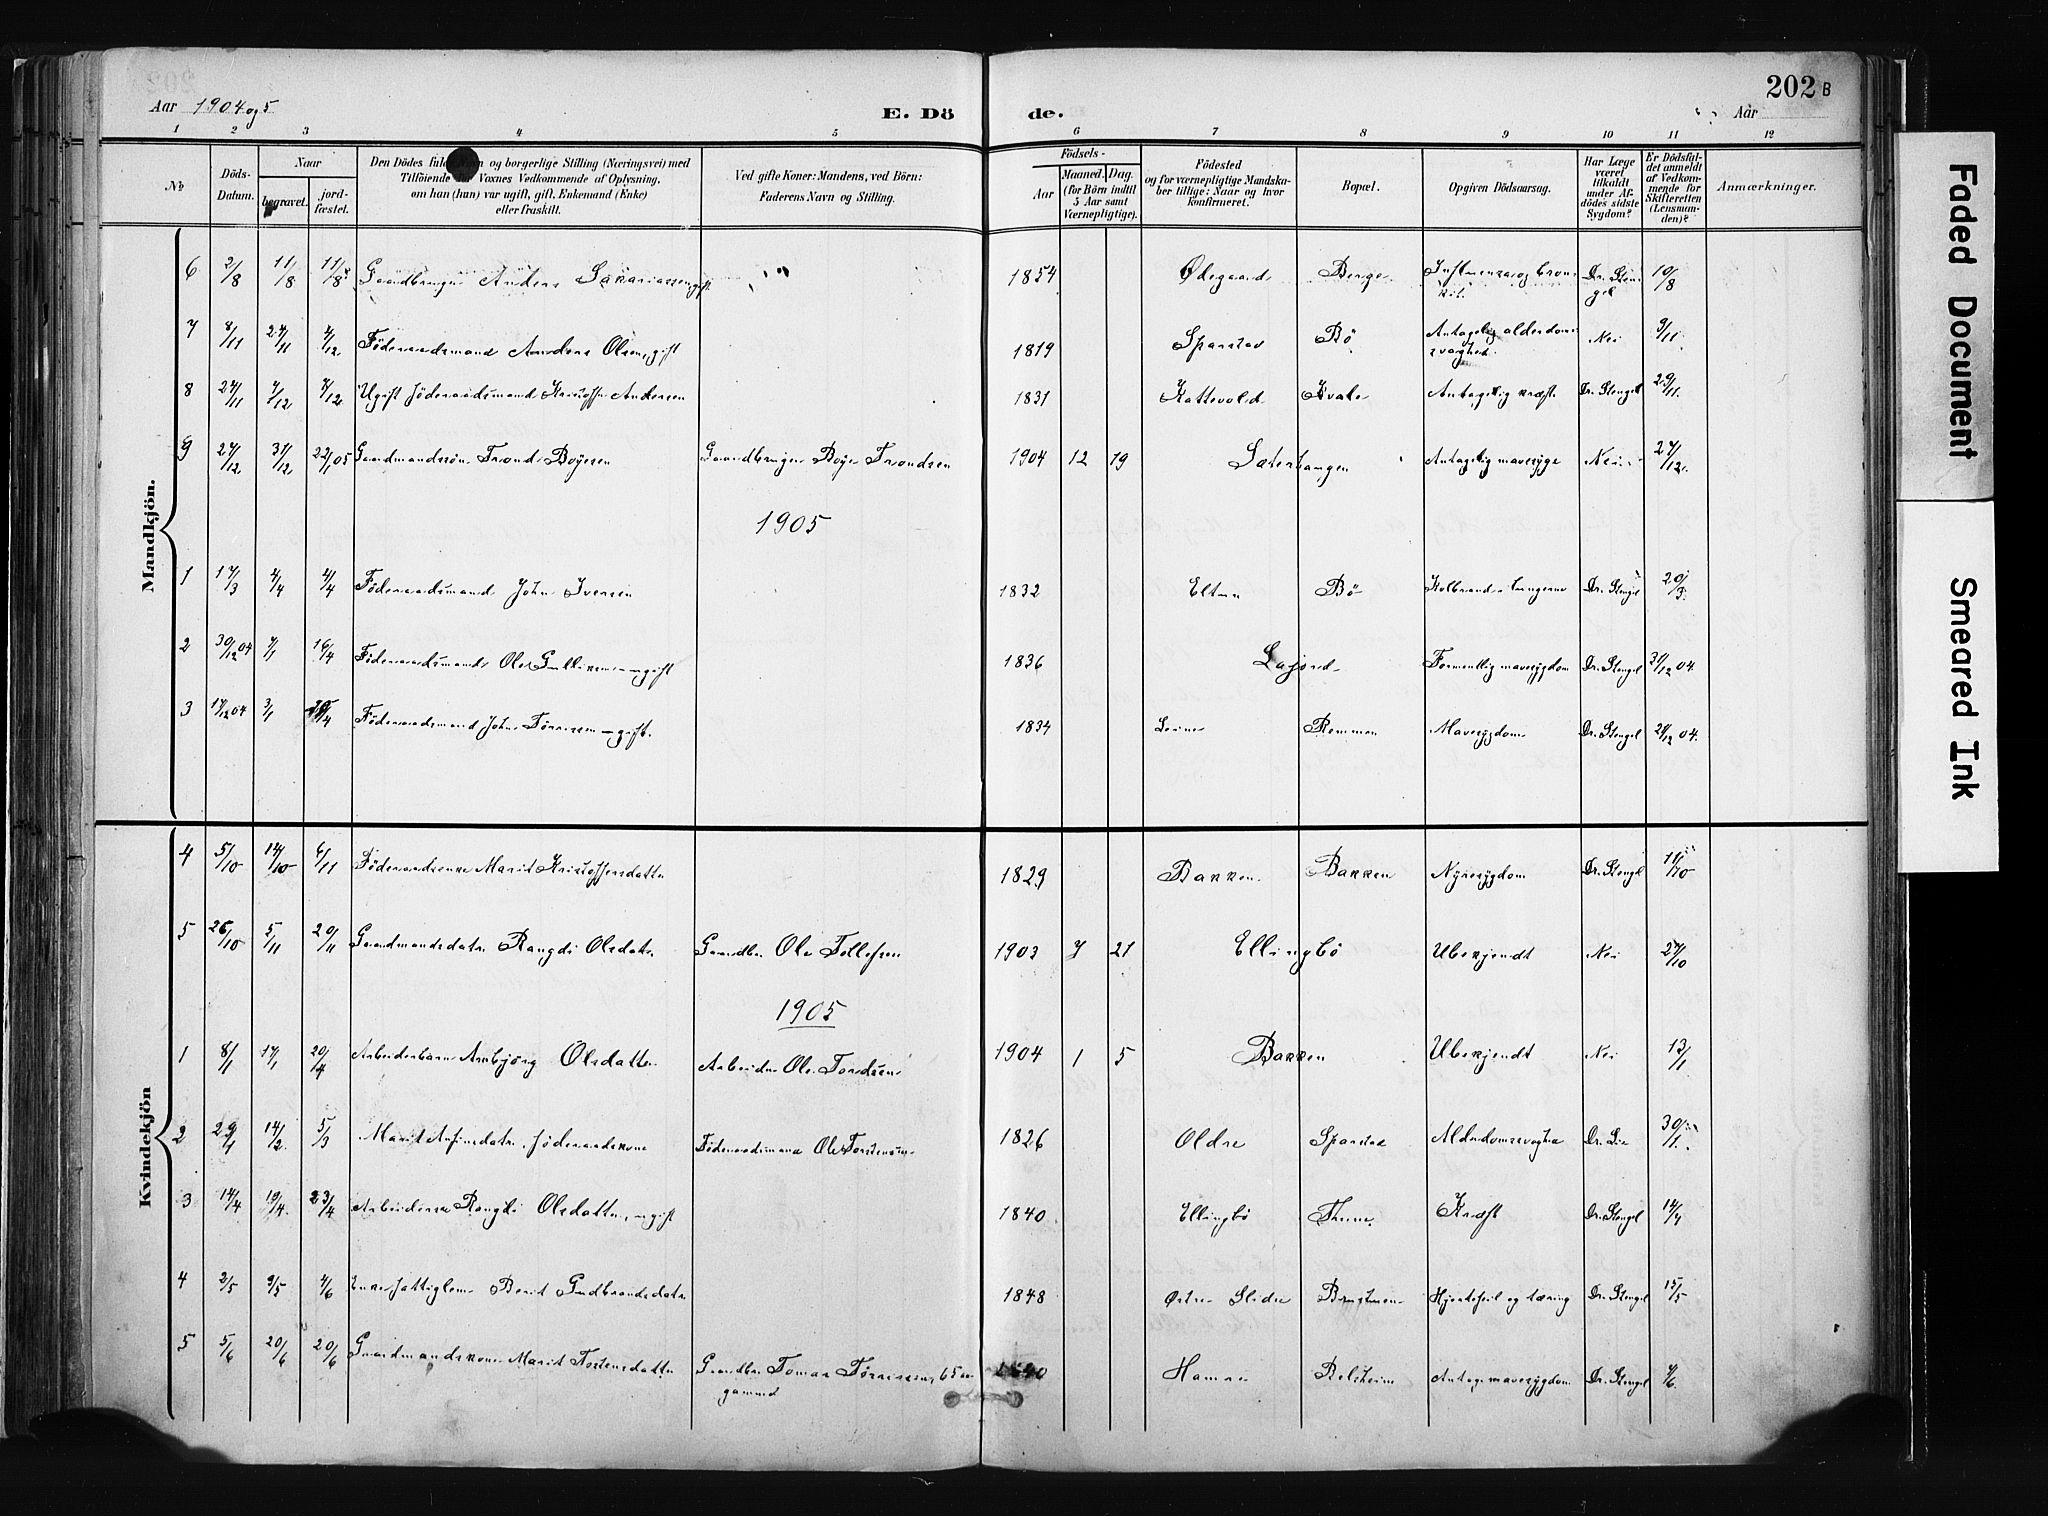 Aar 1904 og 5
E. Dö de.
Aar
202 B
1 2 3 4 5 6 7 8 9 10 11 12
No
Döds-Datum.
Naar
begravet.
jord-fæstet.
Den Dödes fulde Navn og borgerlige Stilling (Næringsvei) med
Tilföiende for Voxnes Vedkommende af Oplysning,
om han (hun) var ugift, gift, Enkemand (Enke)
eller fraskilt.
Ved gifte Koner: Mandens, ved Börn:
Faderens Navn og Stilling.
Födsels-
Aar
Maaned. Dag.
(for Börn indtil
5 Aar samt
Værnepligtige).
Födested
og for værnepligtige Mandska-
ber tillige: Naar og hvor
konfirmeret.
Bopæl.
Opgiven Dödsaarsag.
Har Læge
været
tilkaldt
under Af-
dödes sidste
Sygdom?
Er Dödsfal-
det anmeldt
af Vedkom-
mende for
Skifteretten
(Lensman-
den)?
Anmærkninger.
Mandkjön.
6 2/8 11/8 11/8 Gaardbruger Anders Sakariassen gift 1854 Ødegaard Berge Influenza og bronkit. Dr. Stengel 10/8
7 8/11 24/11 4/12 Föderaadsmand Anders Olsen, gift 1819 Sparstad Bö Antagelig alderdomssvaghed. Nei 9/11
8 24/11 7/12 7/12 Ugift föderaadsmand Kristoffer Andersen 1831 Kattevold Kvale Antagelig kræft Dr. Stengel 29/11
9 24/12 31/12 22/1 05 Gaardmandssön Trond Boyesen Gaardbruger Boye Trondsen 1904 12 19 Sæterhaugen Antagelig mavesyge Nei 27/12
1905
1 17/3 4/4 4/4 Föderaadsmand John Iversen 1832 Eltun Bö Kolbrand i lungerne Dr. Stengel 20/3
2 30/12 04 7/1 16/4 Föderaadsmand Ole Gulliksen - ugift 1836 Lajord Formentlig mavesygdom Dr. Stengel 31/12 04
3 17/12 04 3/1 Föderaadsmand John Törrissen - gift. 1834 Leine Remmen Mavesygdom Dr. Stengel 21/12 04
Kvindekjön
4 5/10 14/10 6/11 Föderaadsenke Marit Kristoffersdatter 1829 Bakken Bakken Nyresygdom Dr. Stengel 11/10
5 26/10 5/11 20/11 Gaardmandsdatr Rangdi Olsdatr Gaardbr. Ole Tollefsen 1903 7 21 Ellingbö Ubekjendt Nei 27/10
1905
1 8/1 17/1 20/4 Arbeiderbarn Arnbjörg Olsdatter Arbeider Ole Tordsen 1904 1 5 Bakken Ubekjendt Nei 13/1
2 29/1 14/2 5/3 Marit Arfinsdatr. föderaadskone Föderaadsmand Ole Torstensen 1826 Oldre Sparstad Alderdomssvaghed Dr. Lie 30/1
3 14/4 19/4 23/4 Arbeiderske Rangdi Olsdatter, ugift 1840 Ellingbö Thune Kræft Dr. Stengel 14/4
4 2/5 9/5 4/6 Enke fattiglem Berit Gudbrandsdatr 1848 Østre Slidre Hjertefeil og tæring Dr. Stengel 15/5
5 5/6 20/6 20/6 Gaardmandskone Marit Tostensdatter Gaardbr. Tomas Törrissen, 65 aar gammel 1840 Hamre Relsheim Antagl. mavesygdom Dr. Stengel
Faded Document
Smeared Ink